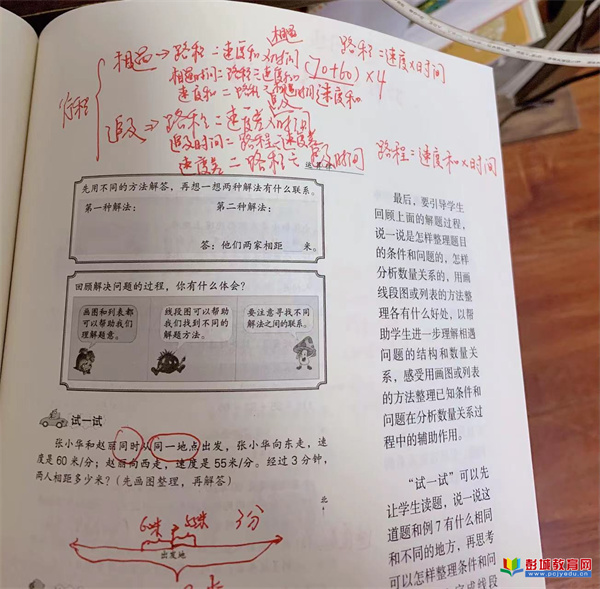 相遇
相遇→路程=速度和×时间
路程=速度×时间
相遇时间=路程÷速度和
(70+60)×4
速度和=路程÷相遇时间
速度和
行程
追及
追及→路程=速度差×时间
追及时间=路程÷速度差
速度差=路程÷追及时间
路程=速度和×时间
先用不同的方法解答，再想一想两种解法有什么联系。
第一种解法：
第二种解法：
答：他们两家相距 米。
回顾解决问题的过程，你有什么体会？
画图和列表都
可以帮助我们
理解题意。
线段图可以帮助
我们找到不同的
解题方法。
要注意寻找不同
解法之间的联系。
试一试
张小华和赵丽同时从同一地点出发，张小华向东走，速
度是60米/分；赵丽向西走，速度是55米/分。经过3分钟，
两人相距多少米？（先画图整理，再解答）
北
3分
出发地
最后，要引导学生
回顾上面的解题过程，
说一说是怎样整理题目
的条件和问题的，怎样
分析数量关系的，用画
线段图或列表的方法整
理各有什么好处，以帮
助学生进一步理解相遇
问题的结构和数量关
系，感受用画图或列表
的方法整理已知条件和
问题在分析数量关系过
程中的辅助作用。
“试一试”可以先
让学生读题，说一说这
道题和例7有什么相同
和不同的地方，再思考
可以怎样整理条件和问
彭城教育网
www.pcjyedu.cn